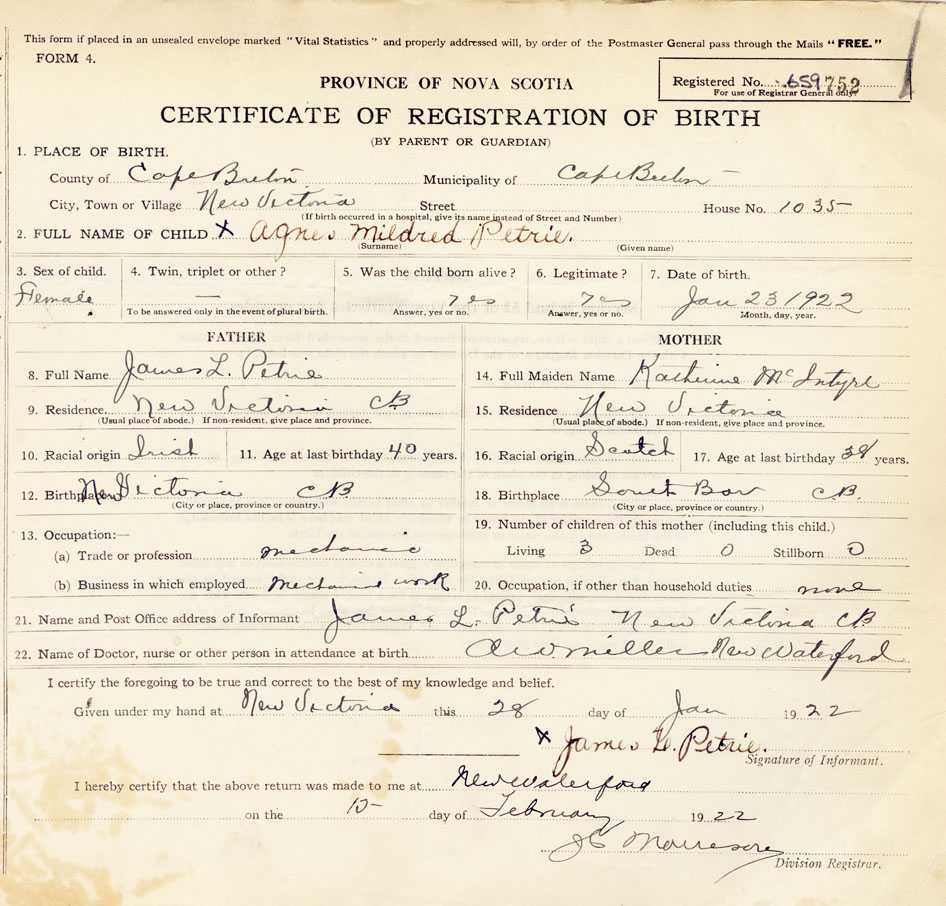 This form if placed in an unsealed envelope marked "Vital Statistics" and properly addressed will, by order of the Postmaster General pass through the Mails "FREE."
FORM 4.
PROVINCE OF NOVA SCOTIA
Registered No. 659752
For use of Registrar General only.
CERTIFICATE OF REGISTRATION OF BIRTH
(BY PARENT OR GUARDIAN)
1. PLACE OF BIRTH.
County of Cape Breton Municipality of Cape Breton
City, Town or Village New Victoria Street House No. 1035
(If birth occurred in a hospital, give its name instead of Street and Number)
2. FULL NAME OF CHILD X Agnes Mildred Petrie.
(Surname) (Given name)
3. Sex of child. 4. Twin, triplet or other? 5. Was the child born alive? 6. Legitimate? 7. Date of birth.
Female — yes yes Jan 23/1922
To be answered only in the event of plural birth. Answer, yes or no. Answer, yes or no. Month, day, year.
FATHER MOTHER
8. Full Name James L. Petrie 14. Full Maiden Name Katherine McIntyre
9. Residence New Victoria CB 15. Residence New Victoria
(Usual place of abode.) If non-resident, give place and province. (Usual place of abode.) If non-resident, give place and province.
10. Racial origin Irish 11. Age at last birthday 40 years. 16. Racial origin Scotch 17. Age at last birthday years.
12. Birthplace New Victoria CB 18. Birthplace South Bar CB.
(City or place, province or country.) (City or place, province or country.)
19. Number of children of this mother (including this child.)
13. Occupation:—
(a) Trade or profession mechanic Living 3 Dead 0 Stillborn 0
(b) Business in which employed Mechanic work 20. Occupation, if other than household duties none
21. Name and Post Office address of Informant James L. Petrie New Victoria CB
22. Name of Doctor, nurse or other person in attendance at birth Miller New Waterford
I certify the foregoing to be true and correct to the best of my knowledge and belief.
Given under my hand at New Victoria this 28 day of Jan 1922
X James L. Petrie.
Signature of Informant.
I hereby certify that the above return was made to me at New Waterford
on the 15 day of February 1922
Division Registrar.